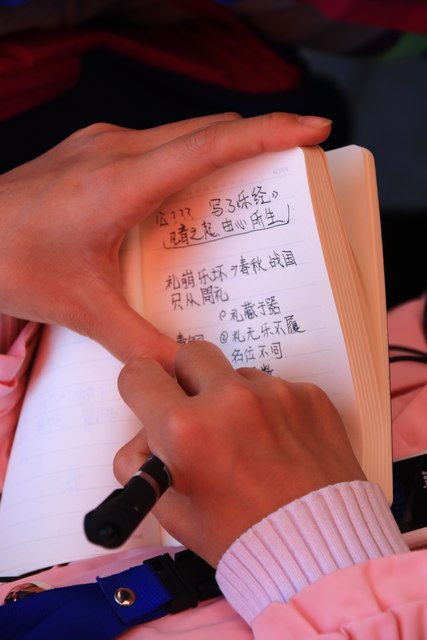 写了乐经》
音之起,由心所生
礼崩乐坏→春秋战国
只从周礼
@礼藏于器
@礼无乐不履
名位不同